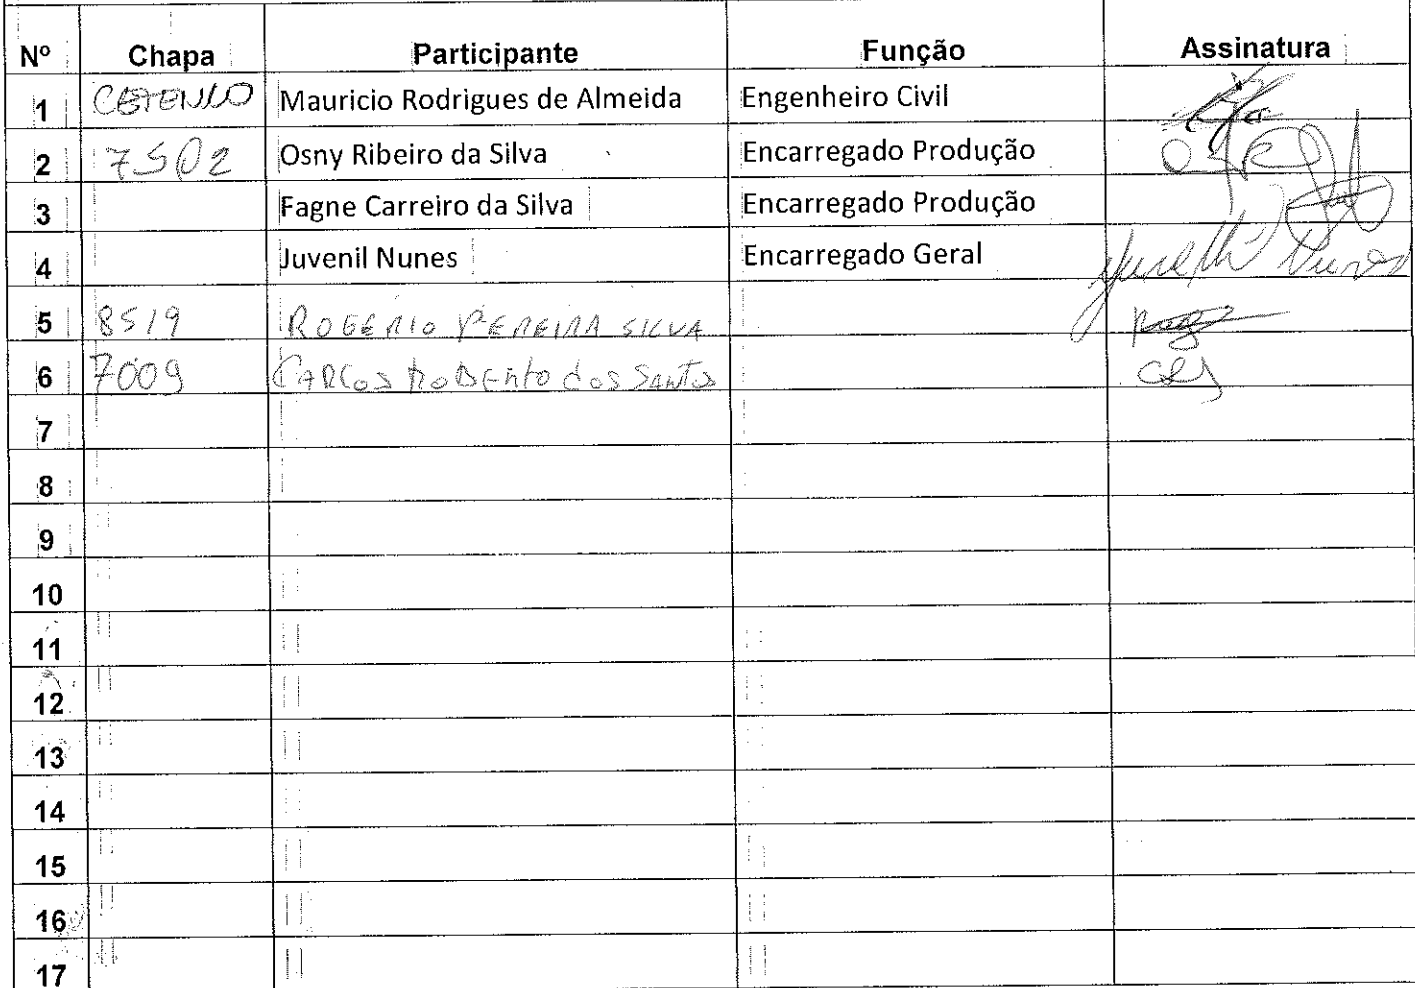 Nº Chapa Participante Função Assinatura
1 CETENCO Mauricio Rodrigues de Almeida Engenheiro Civil
2 7502 Osny Ribeiro da Silva Encarregado Produção
3 Fagne Carreiro da Silva Encarregado Produção
4 Juvenil Nunes Encarregado Geral Juvenil Nunes
5 8519 ROGÉRIO PEREIRA SILVA
6 7009 CARLOS ROBERTO dos SANTOS
7
8
9
10
11
12
13
14
15
16
17